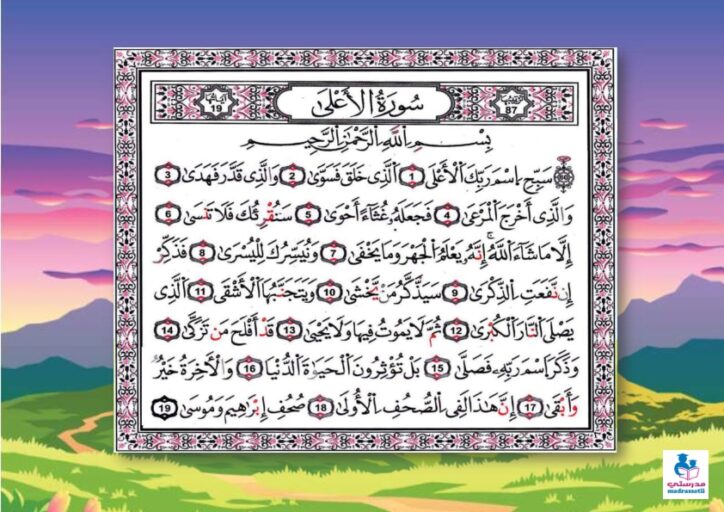 آياتها 19
سُورَةُ الأَعْلَىٰ
ترتيبها 87
بِسْمِ اللَّهِ الرَّحْمَٰنِ الرَّحِيمِ
سَبِّحِ اِسْمَ رَبِّكَ الْأَعْلَى 1 الَّذِي خَلَقَ فَسَوَّىٰ 2 وَالَّذِي قَدَّرَ فَهَدَىٰ 3
وَالَّذِي أَخْرَجَ الْمَرْعَىٰ 4 فَجَعَلَهُ غُثَاءً أَحْوَىٰ 5 سَنُقْرِئُكَ فَلَا تَنسَىٰ 6
إِلَّا مَا شَاءَ اللَّهُ إِنَّهُ يَعْلَمُ الْجَهْرَ وَمَا يَخْفَىٰ 7 وَنُيَسِّرُكَ لِلْيُسْرَىٰ 8 فَذَكِّرْ
إِن نَّفَعَتِ الذِّكْرَىٰ 9 سَيَذَّكَّرُ مَنْ يَخْشَىٰ 10 وَيَتَجَنَّبُهَا الْأَشْقَى 11 الَّذِي
يَصْلَى النَّارَ الْكُبْرَىٰ 12 ثُمَّ لَا يَمُوتُ فِيهَا وَلَا يَحْيَىٰ 13 قَدْ أَفْلَحَ مَن تَزَكَّىٰ 14
وَذَكَرَ اسْمَ رَبِّهِ فَصَلَّىٰ 15 بَلْ تُؤْثِرُونَ الْحَيَاةَ الدُّنْيَا 16 وَالْآخِرَةُ خَيْرٌ
وَأَبْقَىٰ 17 إِنَّ هَٰذَا لَفِي الصُّحُفِ الْأُولَىٰ 18 صُحُفِ إِبْرَاهِيمَ وَمُوسَىٰ 19
مدرستي
madrassatii